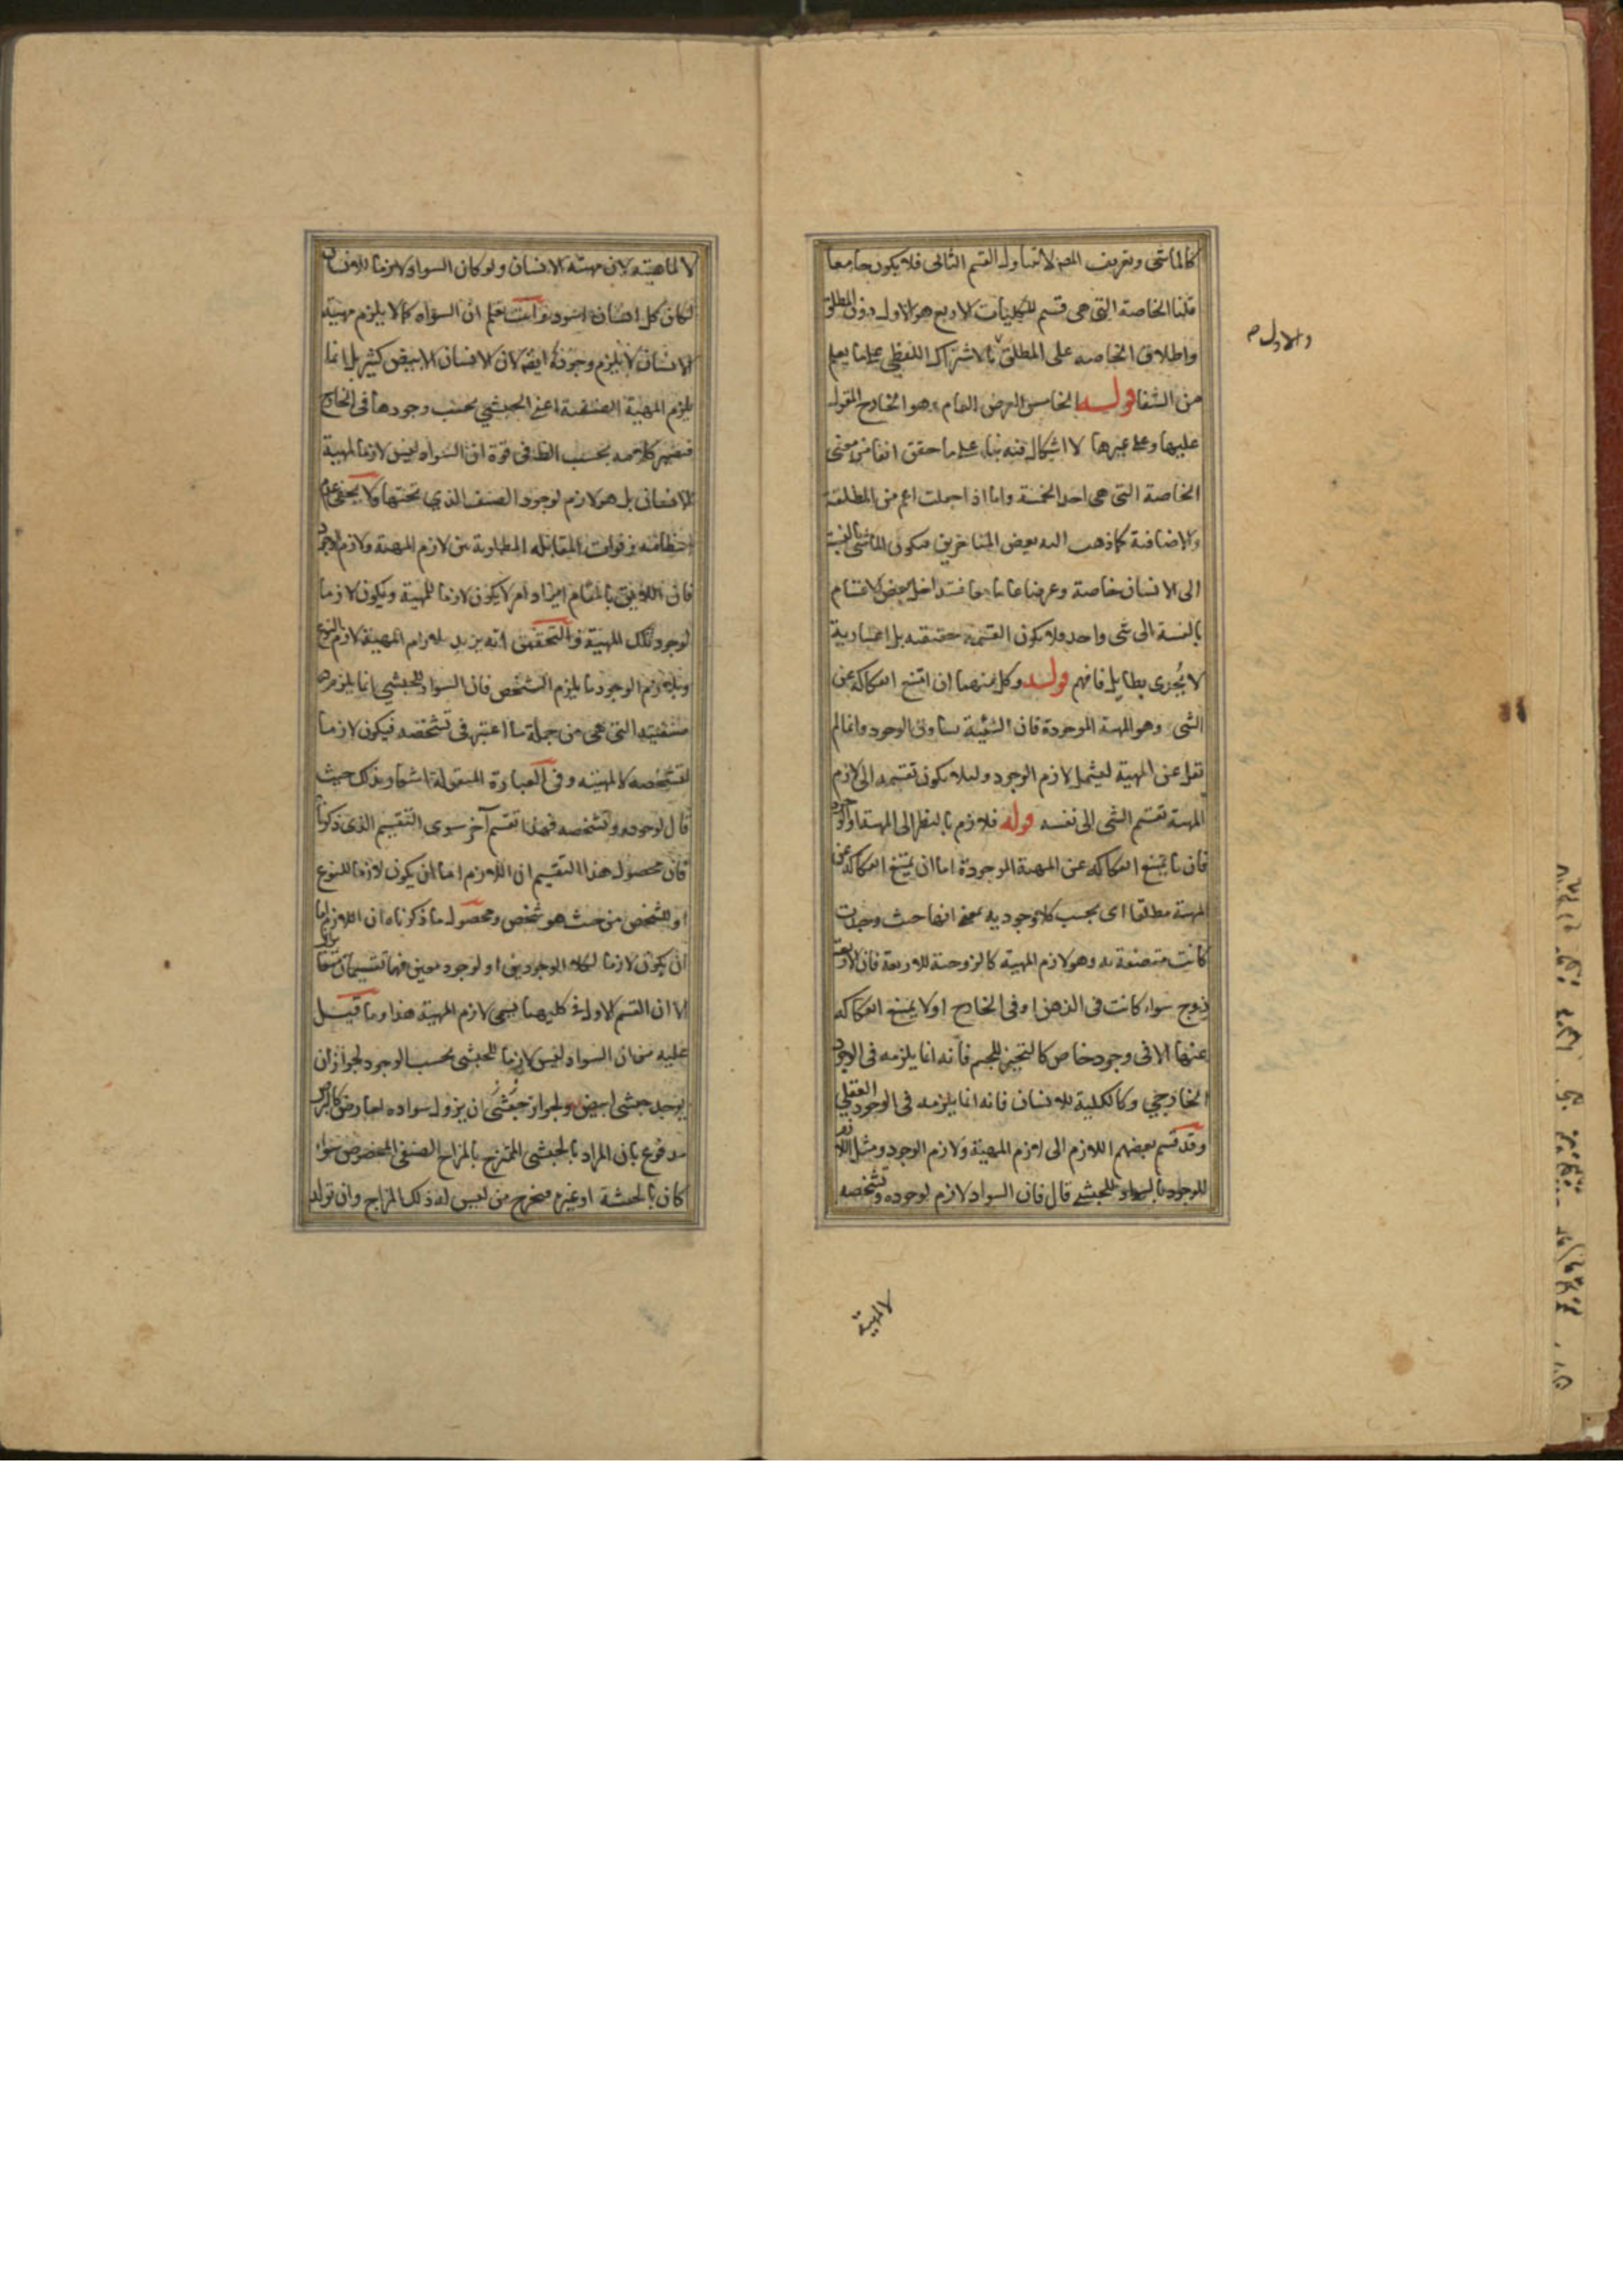 كالماشى وتعريف المص لا تتناول القسم الثانى فلا يكون جامعا
قلنا الخاصة التى هى قسم للكليات الاربع هو الاول دون المطلق
واطلاق الخاصه على المطلق بالاشتراك اللفظي على ما يعلم
والاول م
من الشفا قوله الخامس العرض العام هو الخارج المقول
عليها وعلى غيرها لا اشكال فيه بناء على ما حقق انفا من معنى
الخاصة التى هى احد الخمسة واما اذا جعلت اعم من المطلقة
والاضافية كما ذهب اليه بعض المتاخرين فيكون الماشى بالنسبة
الى الانسان خاصة وعرضا عاما معا فتداخل بعض الاقسام
بالنسبة الى شى واحد فلا يكون القسمة حقيقيه بل اعتبارية
لا يجدى بطايل فافهم قوله وكل منهما ان امتنع انفكاكه عن
الشى وهو المهية الموجودة فان الشيئية تساوق الوجود وانما لم
نقل عن المهية ليشمل لازم الوجود ولئلا يكون تقسيمه الى لازم
المهية تقسيم الشى الى نفسه قوله فلازم بالنظر الى المهية او الوجود
فان ما يمتنع انفكاكه عن المهية الموجودة اما ان يمتنع انفكاكه عن
المهية مطلقا اى بحسب كلا وجوديه بمعنى انها حيث وجدت
كانت متصفة به وهو لازم المهية كالزوجية للاربعة فان الاربعة
زوج سواء كانت فى الذهن او فى الخارج او لا يمتنع انفكاكه
عنها الا فى وجود خاص كالتحيز للجسم فانه انما يلزمه فى الوجود
الخارجي وكالكلية للانسان فانه انما يلزمه فى الوجود العقلي
وقد قسم بعضهم اللازم الى لازم المهية ولازم الوجود ومثل اللازم
للوجود بالسواد للحبشى قال فان السواد لازم لوجوده وتشخصه
لا لمهية
لا لماهيته لان مهية الانسان ولو كان السواد لازما للانسان
لكان كل انسان اسود وانت تعلم ان السواد كما لا يلزم مهية
الانسان لا يلزم وجوده ايضا لان الانسان الابيض كثير بل انما
يلزم المهية الصنفية اعنى الحبشي بحسب وجودها فى الخارج
فيصير كلامه بحسب الظ فى قوة ان السواد ليس لازما لمهية
الانسان بل هو لازم لوجود الصنف الذي تحتها ولا يخفى عدم
انتظامه وفوات المقابلة المطلوبة بين لازم المهية ولازم الوجود
فان اللايق بالمقام ايراد امر لا يكون لازما للمهية ويكون لازما
لوجود تلك المهية والتحقيق انه يريد بلازم المهية لازم النوع
وبلازم الوجود ما يلزم الشخص فان السواد للحبشي انما يلزم
صنفيته التى هى من جملة ما اعتبر فى تشخصه فيكون لازما
لتشخصه لا لمهيته وفى العبارة المنقولة اشعار بذلك حيث
قال لوجوده وتشخصه فهذا تقسيم آخر سوى التقسيم الذى ذكرنا
فان محصول هذا التقسيم ان اللازم اما ان يكون لازما للنوع
او للشخص من حيث هو شخص ومحصول ما ذكرناه ان اللازم اما
ان يكون لازما لكلا الوجودين او لوجود معين فهما تقسيمان متغايران
الا ان القسم الاول فى كليهما يسمى لازم المهية هذا وما قيل
عليه من ان السواد ليس لازما للحبشى بحسب الوجود لجواز ان
يوجد حبشى ابيض ولجواز حبشى ان يزول سواده لعارض كالبرص
مدفوع بان المراد بالحبشى الممتزج بالمزاج الصنفي المخصوص سواء
كان بالحبشة او غيره فيخرج من ليس له ذلك المزاج وان تولد